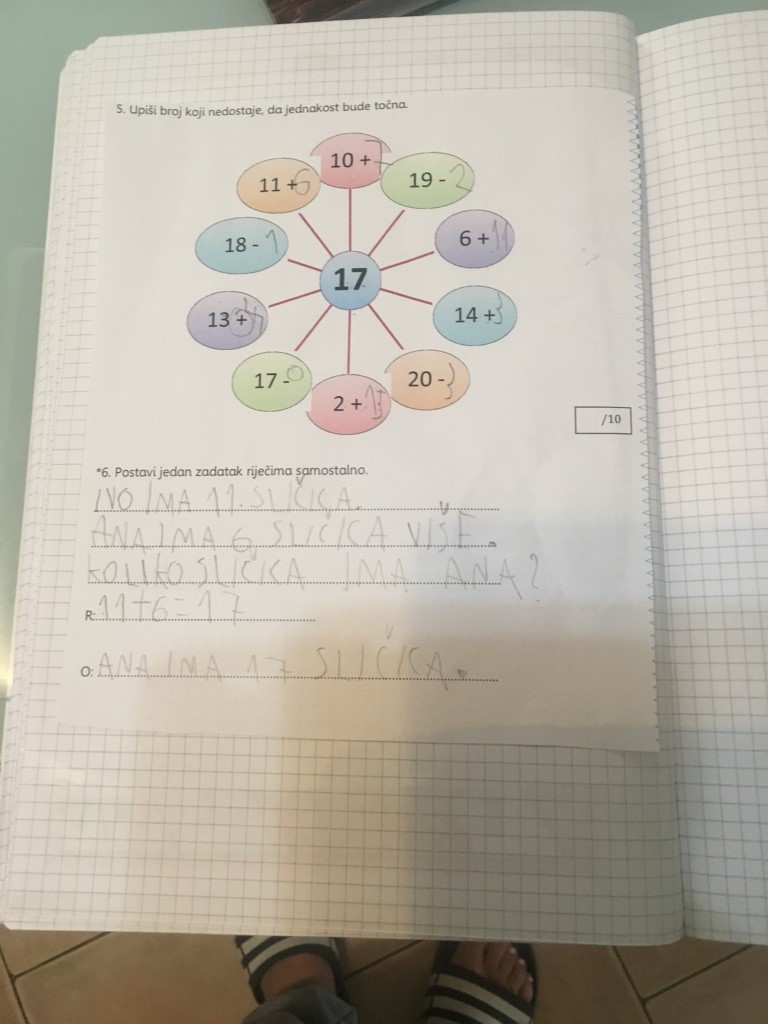 5. Upiši broj koji nedostaje, da jednakost bude točna.
10 + 7
19 - 2
6 + 11
14 + 3
20 - 3
2 + 15
17 - 0
13 + 4
18 - 1
11 + 6
17
/10
*6. Postavi jedan zadatak riječima samostalno.
IVO IMA 11. SLIČICA.
ANA IMA 6 SLICICA VIŠE.
KOLIKO SLIČICA IMA ANA?
R: 11+6=17
O: ANA IMA 17 SLIČICA.